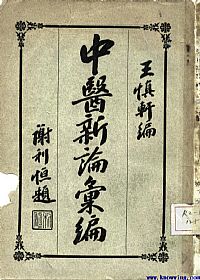 王慎軒編
中醫新論彙編
謝利恒題
www.knowing.com